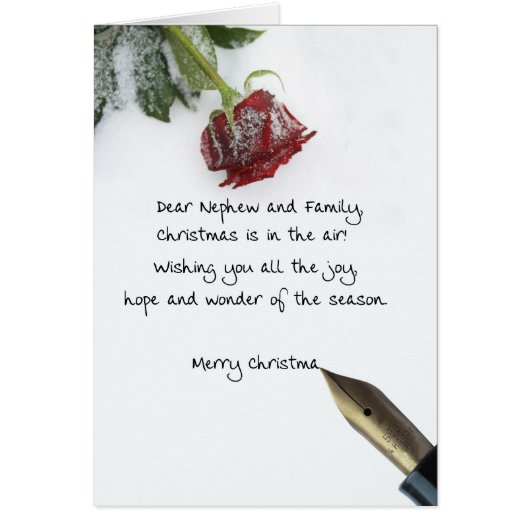 Dear Nephew and Family,
Christmas is in the air!
Wishing you all the joy,
hope and wonder of the season.
Merry Christma